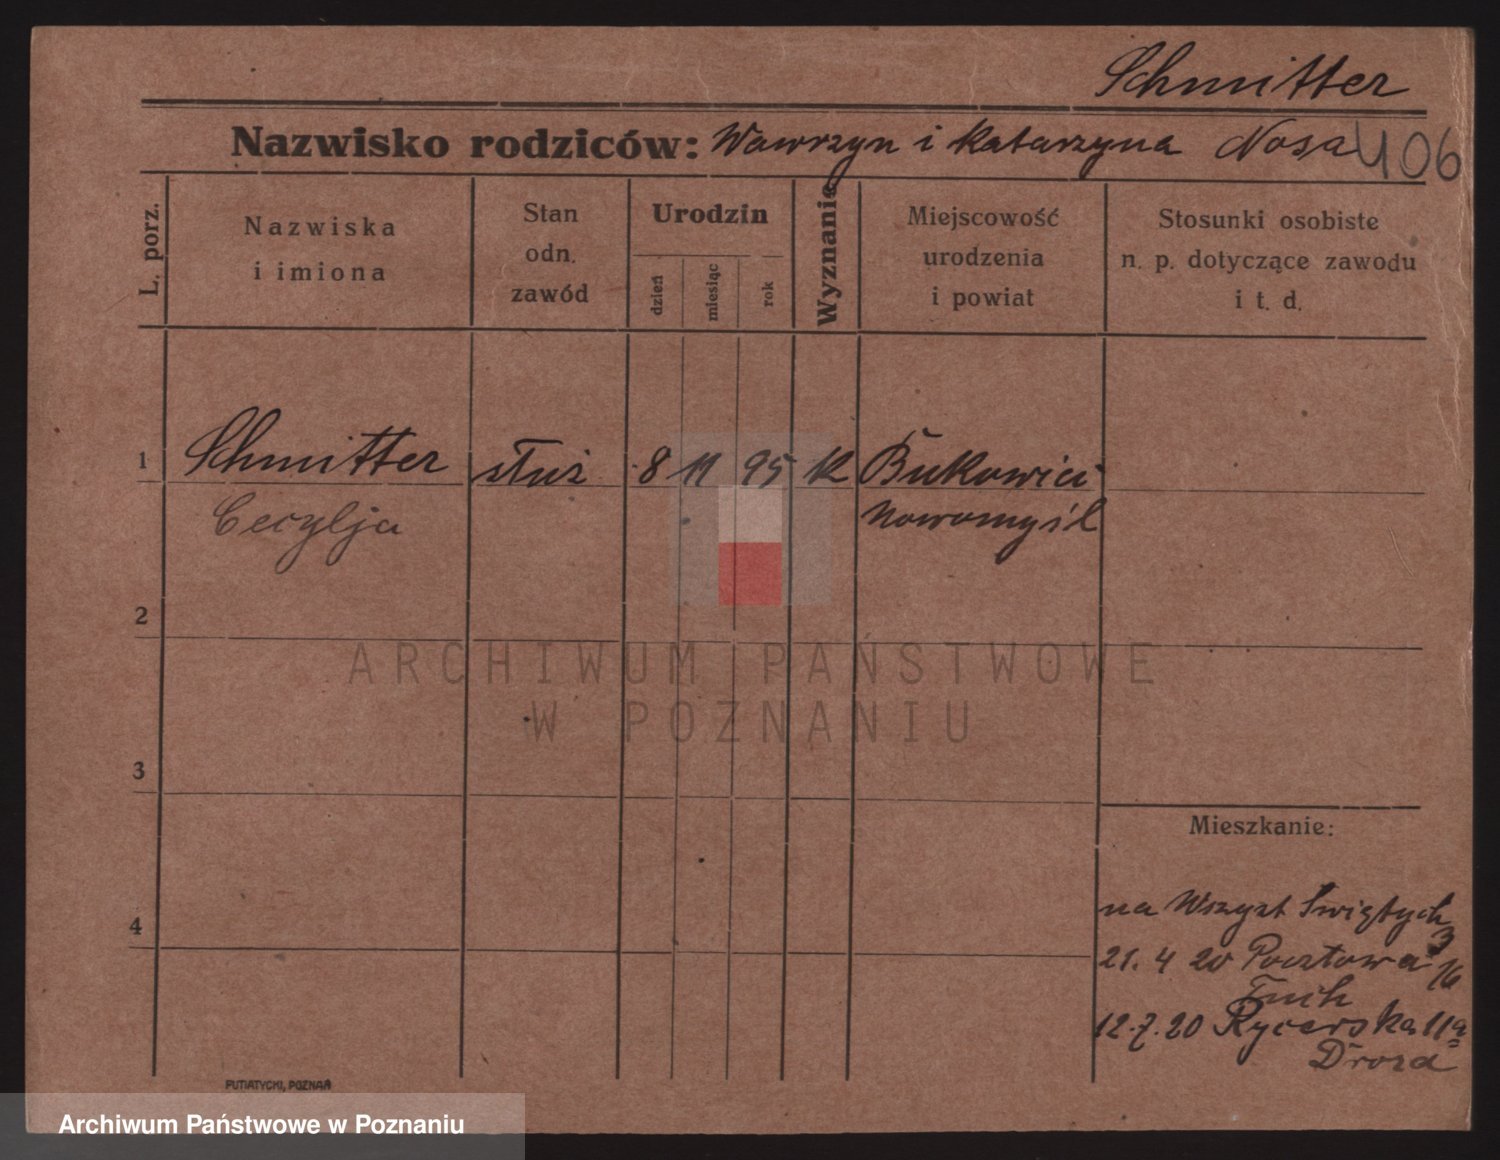 Schmitter
Nazwisko rodziców: Wawrzyn i Katarzyna Nosa
406
L. porz.
Nazwiska
i imiona
Stan
odn.
zawód
Urodzin
dzień
miesiąc
rok
Wyznanie
Miejscowość
urodzenia
i powiat
Stosunki osobiste
n. p. dotyczące zawodu
i t. d.
1 Schmitter służ 8 11 95 k Bukowiec
Cecylja Nowomyśl
2
ARCHIWUM PAŃSTWOWE
W POZNANIU
3
Mieszkanie:
4
na Wszyst Świętych 3
21. 4 20 Pocztowa 16
12.7.20 Rycerska 11a
Drozd
PUTIATYCKI, POZNAŃ
Archiwum Państwowe w Poznaniu